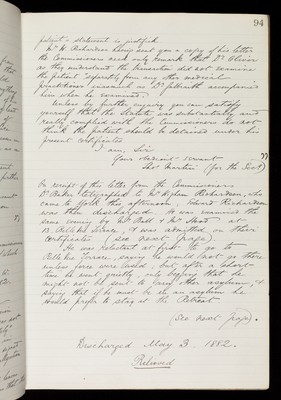 94
patient's statement is justified.
Mr W. Richardson having sent you a copy of his letter
the Commissioners need only remark that Dr Oliver
as they understand the transaction did not examine
the patient separately from any other medical
practitioner inasmuch as Dr accompanied
him when he examined.
Unless by further enquiry you can satisfy
yourself that the Statute was substantially and
really complied with the Commissioners do not
think the patient should be detained under his
present certificates
I am, Sir
Your obedient servant
Thos Martin (for the Sec)
On receipt of this letter from the Commissioners
Dr Baker telegraphed to Mr Richardson, who
came to York this afternoon. Edward Richardson
was then discharged. He was examined the
same evening by Mr Ball & Mr at
13 Terrace, & was admitted on their
Certificates (see next page).
He was reluctant at first to go to
Terrace, saying he would not go there
unless force were used, but after a short
time he went quietly, only begging that he
might not be sent to any other asylum, &
saying that if he must be in an asylum he
would prefer to stay at the Retreat
(See next page).
Discharged May 3 1882.
Relieved